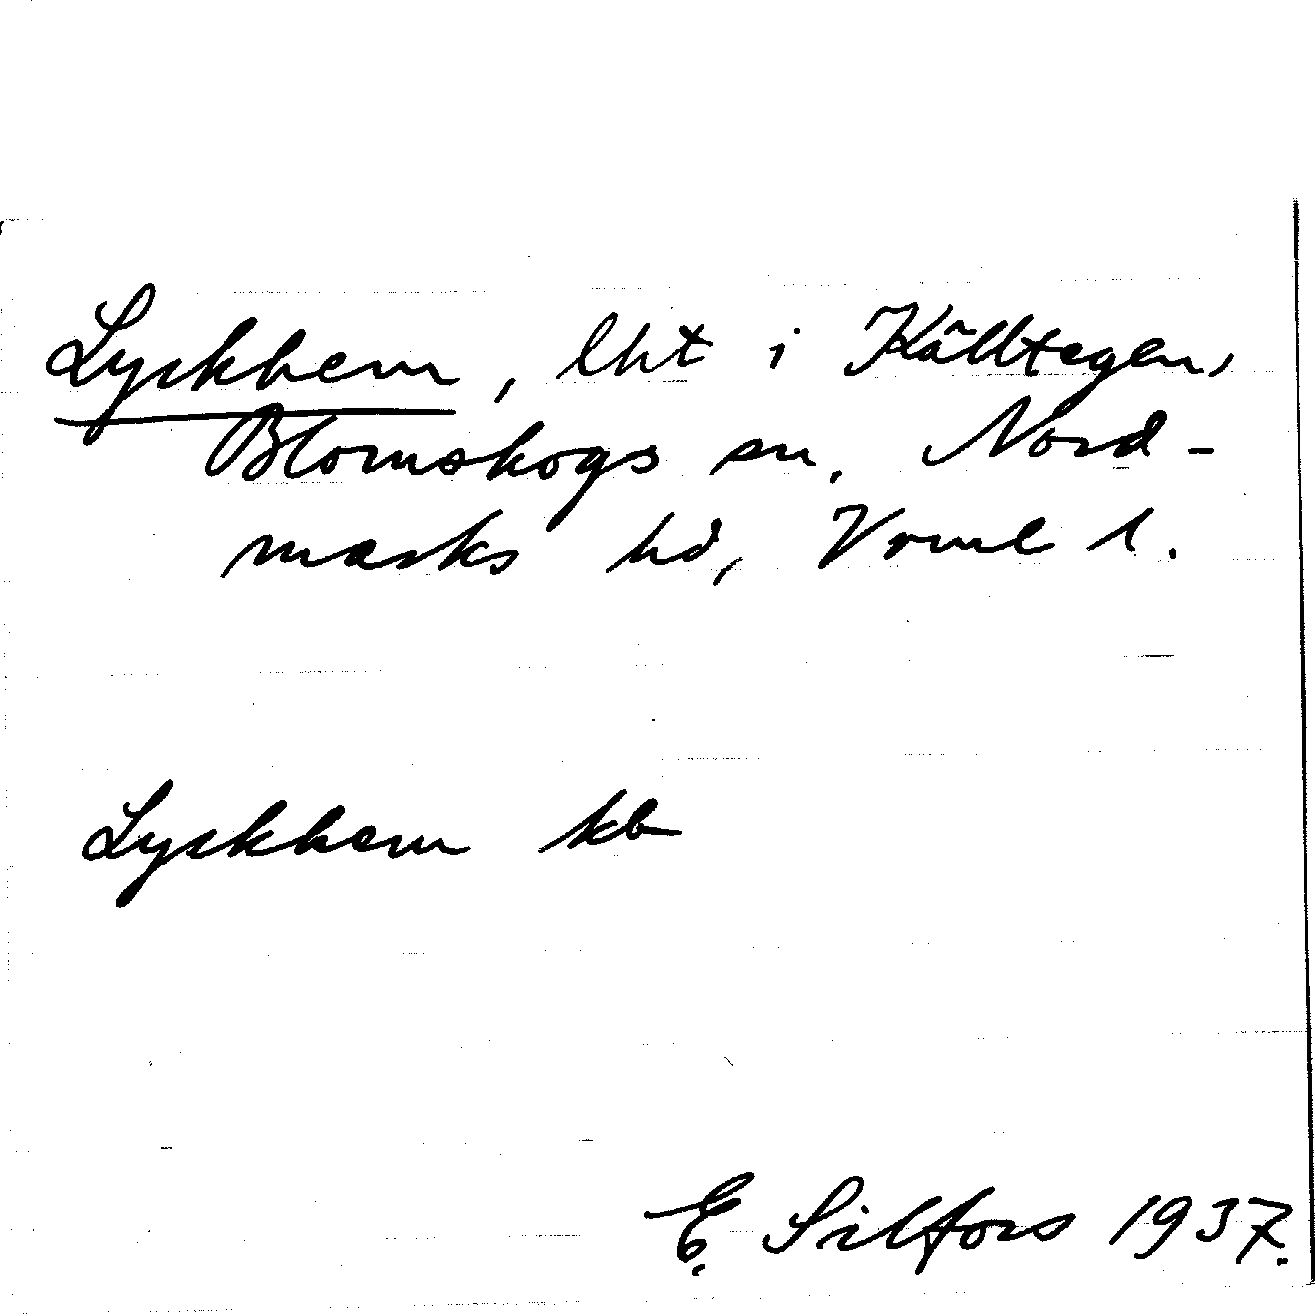 Lyckhem, lht i Källtegen,
Blomskogs sn, Nord-
marks hd, Vrml l.
Lyckhem kb
E. Silfors 1937.